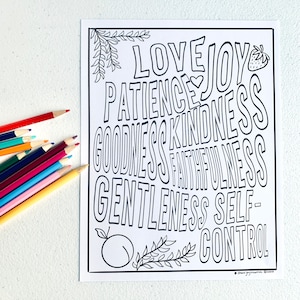 LOVE JOY
PATIENCE
KINDNESS
GOODNESS
FAITHFULNESS
GENTLENESS SELF-
CONTROL